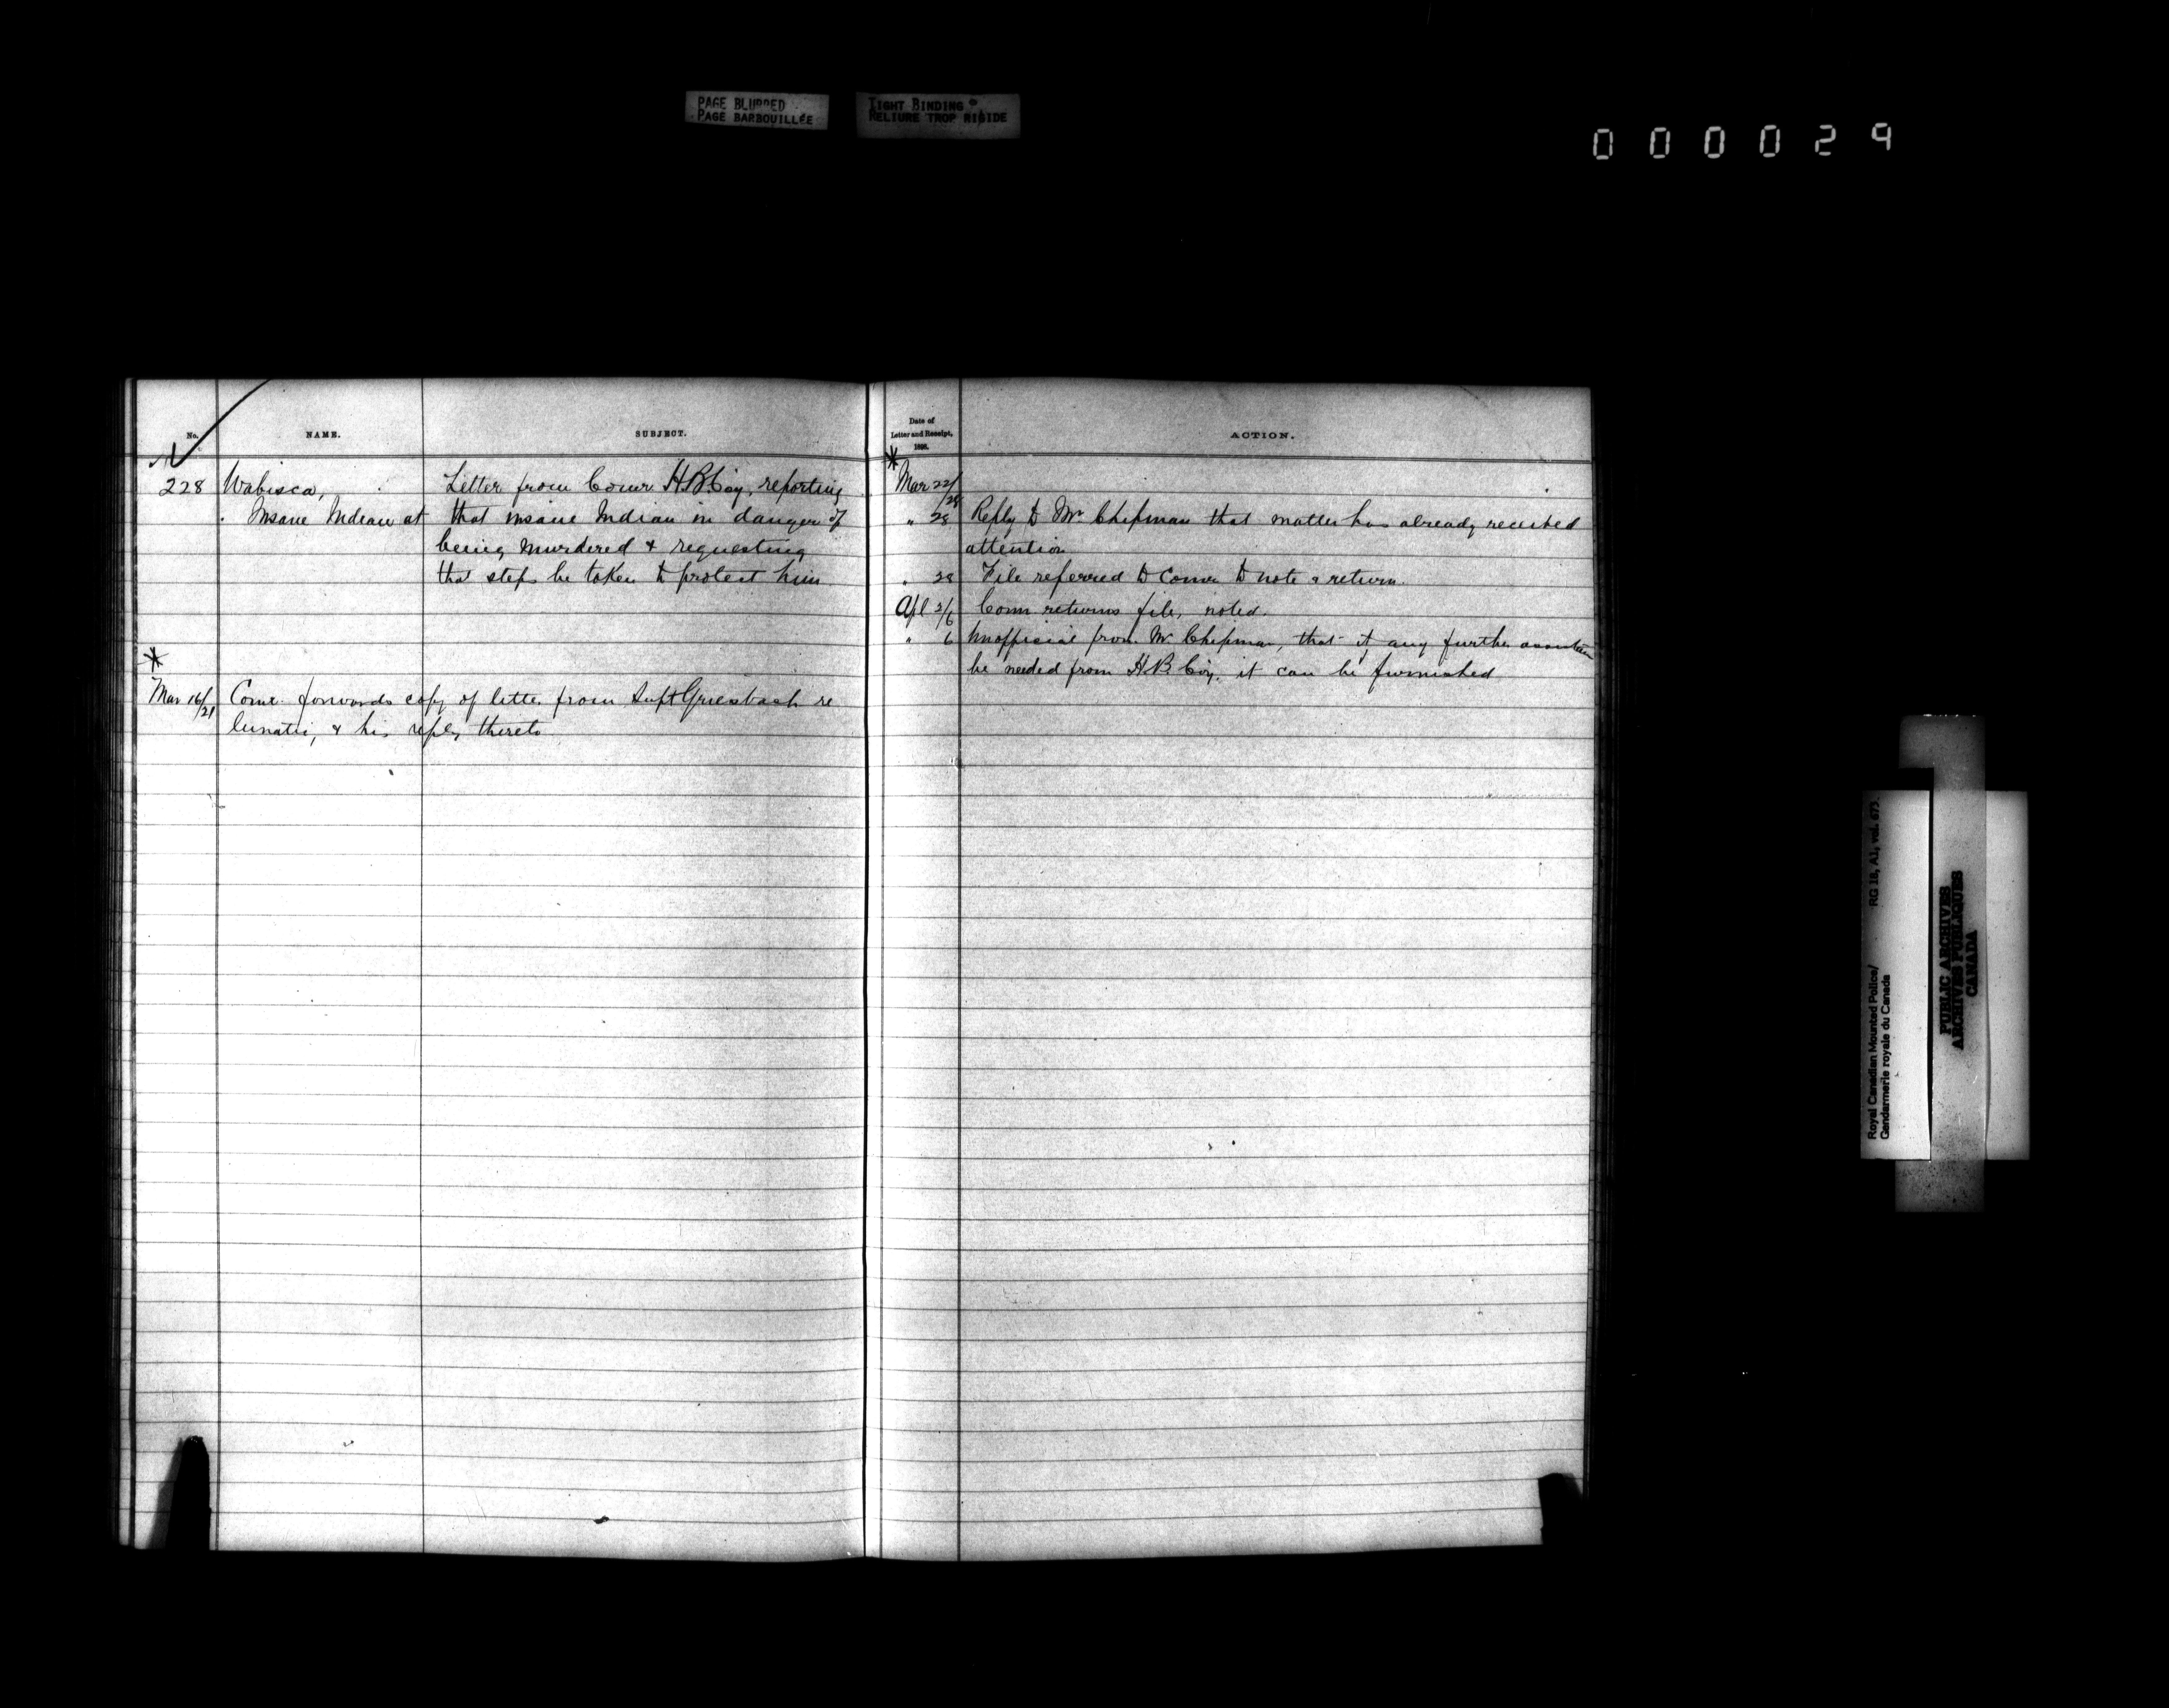 PAGE BLURRED
PAGE BARBOUILLÉE
TIGHT BINDING
RELIURE TROP RIGIDE
000029
No. NAME. SUBJECT.
228 Wabisca, Letter from Comr H.B.Coy, reporting
Insane Indian at that insane Indian in danger of
being murdered & requesting
that steps be taken to protect him
*
Mar 16/21 Comr. forwards copy of letter from Supt Griesbach re
lunatic, & his reply thereto
Date of
Letter and Receipt,
1898.
ACTION.
*
Mar 22/28
" 28 Reply to Mr Chipman that matter has already received
attention
" 28 File referred to Comr to note & return.
Apl 2/6 Comr returns file, noted.
" 6 Unofficial from Mr Chipman, that if any further assistance
be needed from H.B. Coy. it can be furnished
Royal Canadian Mounted Police/ RG 18, A1, vol. 673.
Gendarmerie royale du Canada
PUBLIC ARCHIVES
ARCHIVES PUBLIQUES
CANADA